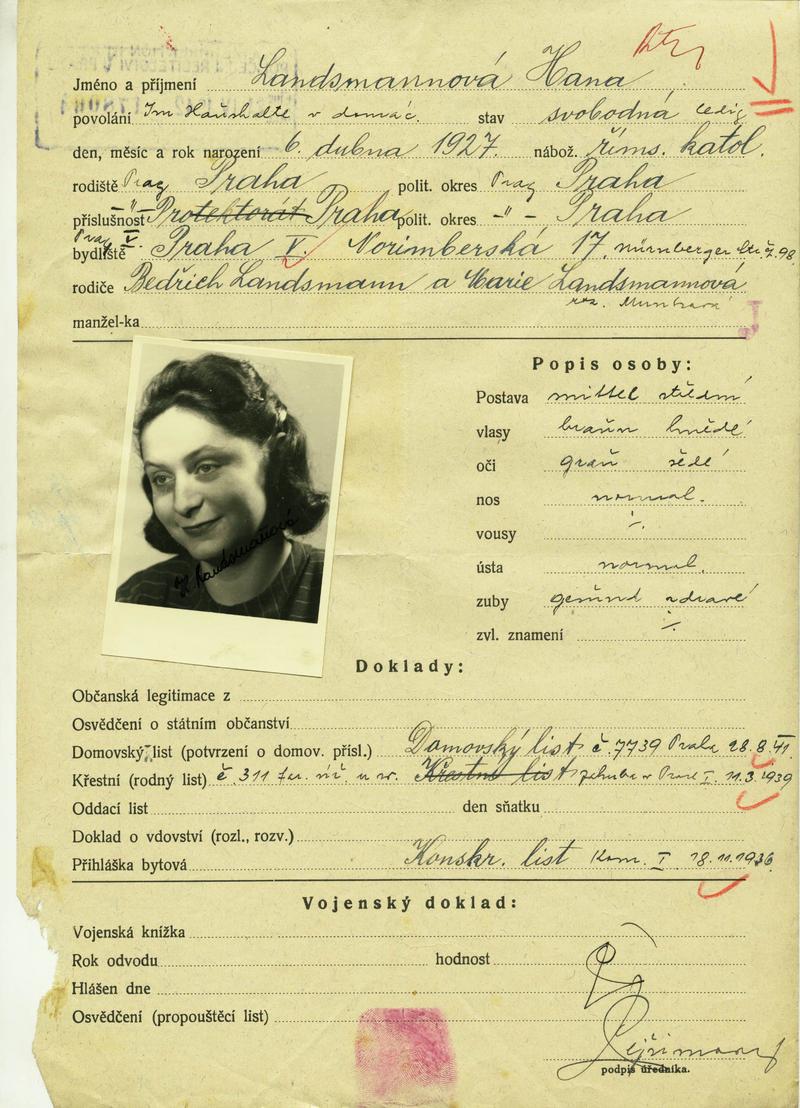 Jméno a příjmení Landsmannová Hana
povolání Im Haushalte v domác. stav svobodná ledig
den, měsíc a rok narození 6. dubna 1927. nábož. říms. katol.
rodiště Prag Praha polit. okres Prag Praha
příslušnost -"- Protektorát Praha polit. okres -"- Praha
Prag V.
bydliště Praha V. Norimberská 17, Nürnberger
rodiče Bedřich Landsmann a Marie Landsmannová
roz.
manžel-ka
J
Popis osoby:
Postava mittel střední
vlasy braun hnědé
oči grau šedé
nos normal.
vousy ÷
ústa normal.
zuby gesund zdravé
zvl. znamení ÷
H Landsmannová
Doklady:
Občanská legitimace z
Osvědčení o státním občanství
Domovský list (potvrzení o domov. přísl.) Domovský list č. 7739 Praha 28.8.41
Křestní (rodný list) č. 311 Křestní list I. 11.3.1939
Oddací list den sňatku
Doklad o vdovství (rozl., rozv.)
Přihláška bytová Konskr. list Kom. I 18.11.1936
Vojenský doklad:
Vojenská knížka
Rok odvodu hodnost
Hlášen dne
Osvědčení (propouštěcí list)
podpis úředníka.